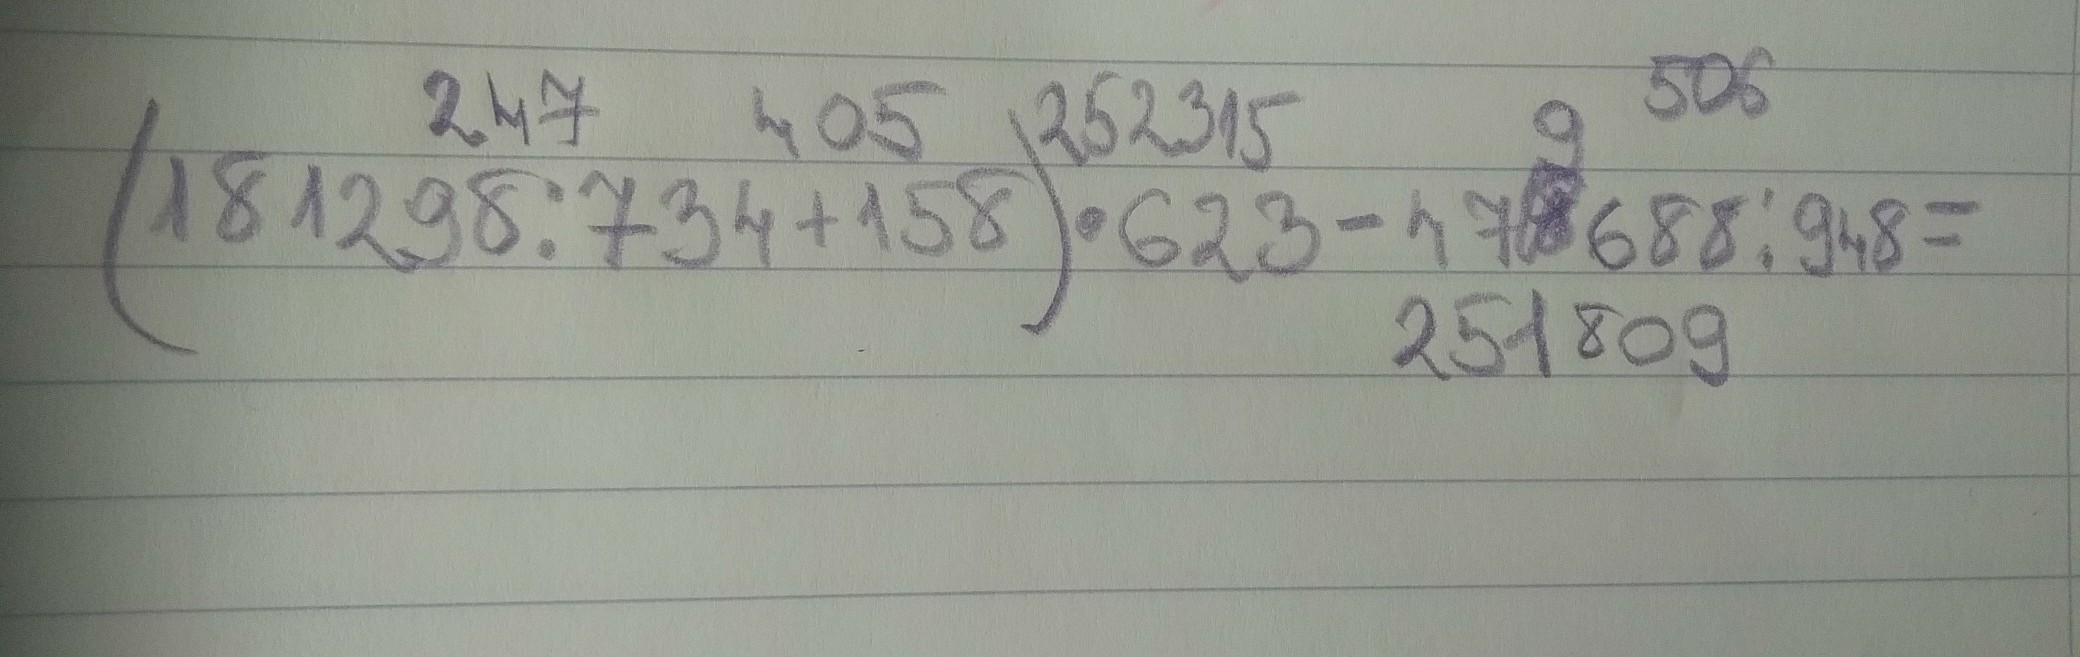 247 405 252315 9 506
(181298:734+158)•623-47 688:948=
251809